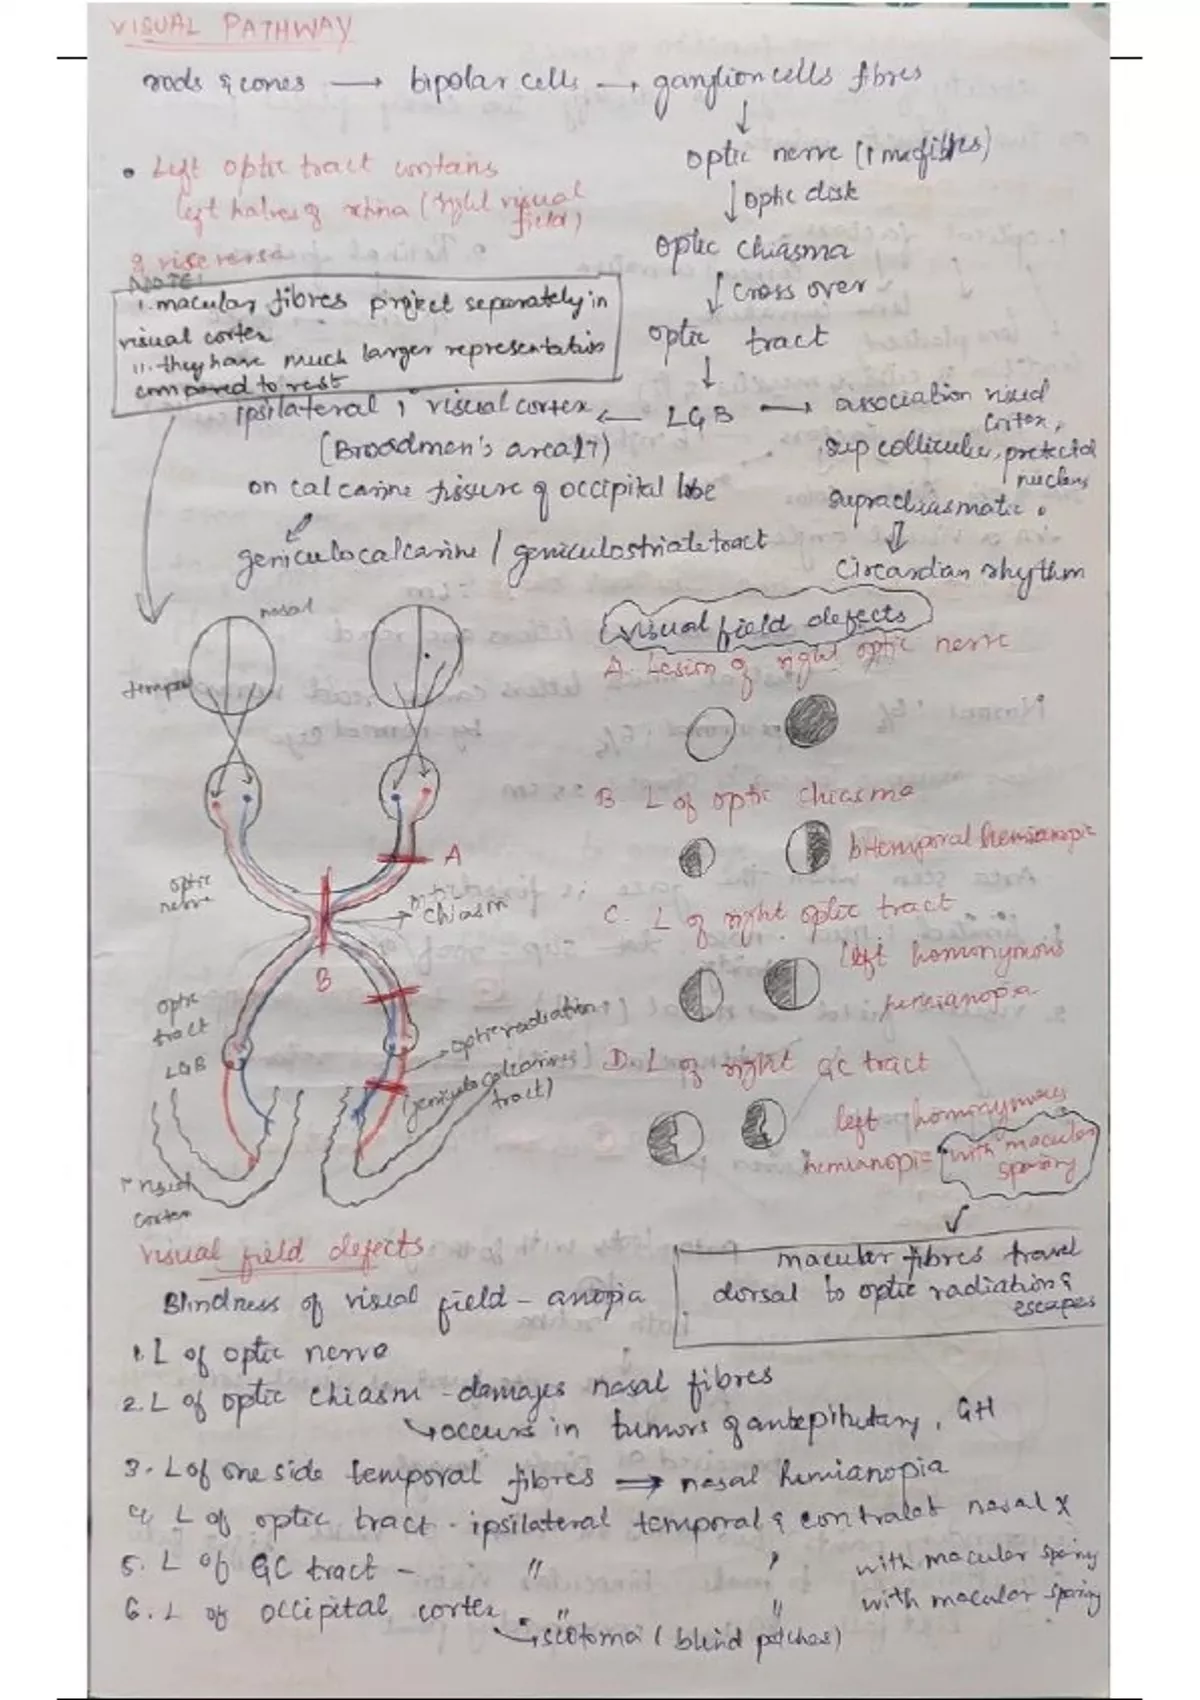 VISUAL PATHWAY
rods & cones → bipolar cells → ganglion cells fibres
↓
optic nerve
↓ optic disk
optic chiasma
↓ cross over
optic tract
↓
• Left optic tract contains
left halves of retina (right visual
field)
& vise versa
NOTE:
i. macular fibres project separately in
visual cortex
ii. they have much larger representation
compared to rest
ipsilateral 1° visual cortex ← LGB → association visual
cortex,
(Broadman's area 17)
sup colliculus, pretectal
nucleus
on calcarine fissure of occipital lobe
suprachiasmatic
geniculocalcarine / geniculostriate tract
⇓
circardian rhythm
nasal
tempo
optic
nerve
A
chiasm
B
optic
tract
LGB
optic radiation
(geniculocalcarine
tract)
1° visual
cortex
visual field defects
A. Lesion of right optic nerve
B. L of optic chiasma
bitemporal hemianopic
C. L of right optic tract
left homonymous
D. L of right GC tract
left homonymous
with macular
sparing
macular fibres travel
dorsal to optic radiation &
escapes
visual field defects
Blindness of visual field - anopia
1. L of optic nerve
2. L of optic chiasm - damages nasal fibres
↳ occurs in tumors of antepitutary, GH
3. L of one side temporal fibres ⇒ nasal hemianopia
4. L of optic tract - ipsilateral temporal & contralat nasal x
5. L of GC tract - " " with macular sparing
6. L of occipital cortex " " with macular sparing
↳ scotoma (blind patches)